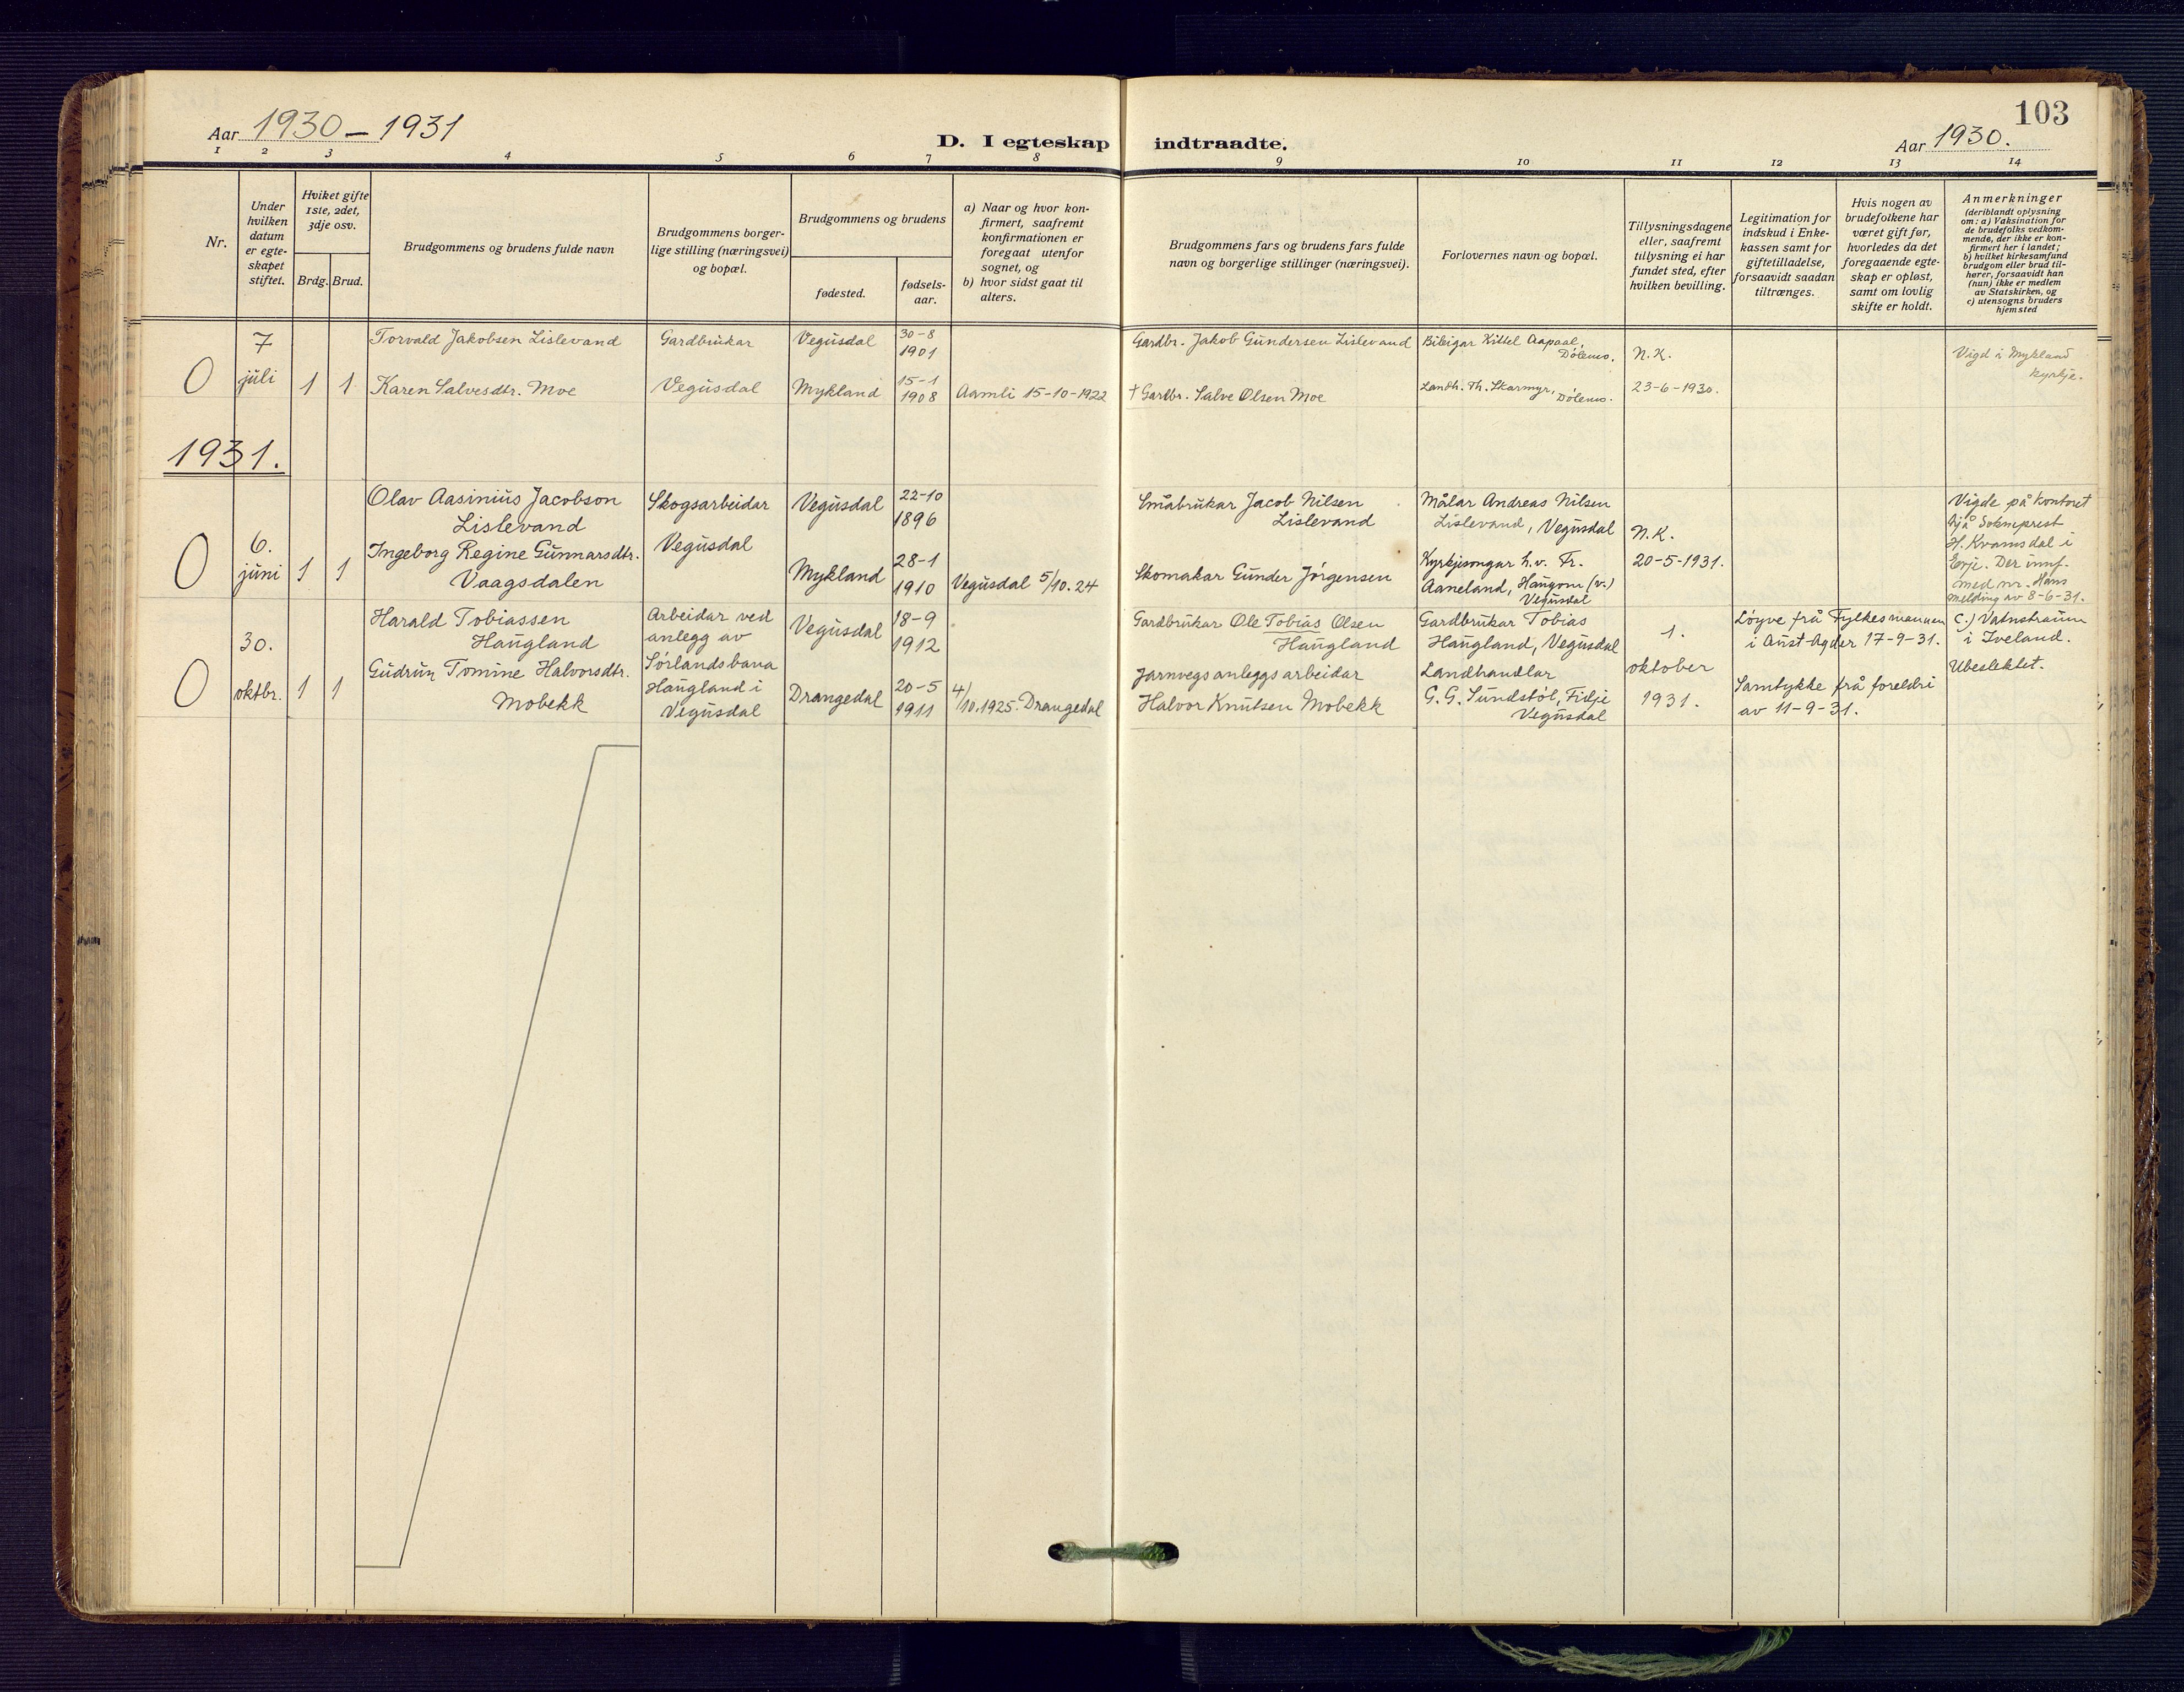 103
Aar 1930 – 1931
D. I egteskap indtraadte.
Aar 1930.
1 2 3 4 5 6 7 8 9 10 11 12 13 14
Nr.
Under
hvilken
datum
er egte-
skapet
stiftet.
Hviket gifte
1ste, 2det,
3dje osv.
Brdg. Brud.
Brudgommens og brudens fulde navn
Brudgommens borger-
lige stilling (næringsvei)
og bopæl.
Brudgommens og brudens
fødested.
fødsels-
aar.
a) Naar og hvor kon-
firmert, saafremt
konfirmationen er
foregaat utenfor
sognet, og
b) hvor sidst gaat til
alters.
Brudgommens fars og brudens fars fulde
navn og borgerlige stillinger (næringsvei).
Forlovernes navn og bopæl.
Tillysningsdagene
eller, saafremt
tillysning ei har
fundet sted, efter
hvilken bevilling.
Legitimation for
indskud i Enke-
kassen samt for
giftetilladelse,
forsaavidt saadan
tiltrænges.
Hvis nogen av
brudefolkene har
været gift før,
hvorledes da det
foregaaende egte-
skap er opløst,
samt om lovlig
skifte er holdt.
Anmerkninger
(deriblandt oplysning
om: a) Vaksination for
de brudefolks vedkom-
mende, der ikke er kon-
firmert her i landet;
b) hvilket kirkesamfund
brudgom eller brud til-
hører, forsaavidt han
(hun) ikke er medlem
av Statskirken, og
c) utensogns bruders
hjemsted
0
7
juli
1 1
Torvald Jakobsen Lislevand
Karen Salvesdtr. Moe
Gardbrukar
Vegusdal
Vegusdal
Mykland
30-8
1901
15-1
1908
Aamli 15-10-1922
Gardbr. Jakob Gundersen Lislevand
† Gardbr. Salve Olsen Moe
Bileigar Kittel Aapaal,
Dölemo.
Landh. Th. Skarmyr,
Dölemo.
N.K.
23-6-1930.
Vigd i Mykland
kyrkje.
1931.
0
6.
juni
1 1
Olav Aasinius Jacobson
Lislevand
Ingeborg Regine Gunnarsdtr.
Vaagsdalen
Skogsarbeidar
Vegusdal
Vegusdal
Mykland
22-10
1896
28-1
1910
Vegusdal 5/10. 24
Småbrukar Jacob Nilsen
Lislevand
Skomakar Gunder Jörgensen
Målar Andreas Nilsen
Lislevand, Vegusdal
Kyrkjesongar h.v. Fr.
Aaneland, Haugom (v.)
Vegusdal
N.K.
20-5-1931.
Vigde på kontoret
hjå Sokneprest
H. Kvamsdal i
Evje. Der innf.
med nr. Hans
melding av 8-6-31.
0
30.
oktbr.
1 1
Harald Tobiassen
Haugland
Gudrun Tomine Halvorsdtr.
Mobekk
Arbeidar ved
anlegg av
Sörlandsbana
Haugland i
Vegusdal
Vegusdal
Drangedal
18-9
1912
20-5
1911
4/10.1925. Drangedal
Gardbrukar Ole Tobias Olsen
Haugland
Jarnvegsanleggsarbeidar
Halvor Knutsen Mobekk
Gardbrukar Tobias
Haugland, Vegusdal
Landhandlar
G. G. Sundstöl, Fidje
Vegusdal
1.
oktober
1931.
Löyve frå Fylkesmannen
i Aust-Agder 17-9-31.
Samtykke frå foreldri
av 11-9-31.
C.) Vatnstraum
i Iveland.
Ubeslektet.